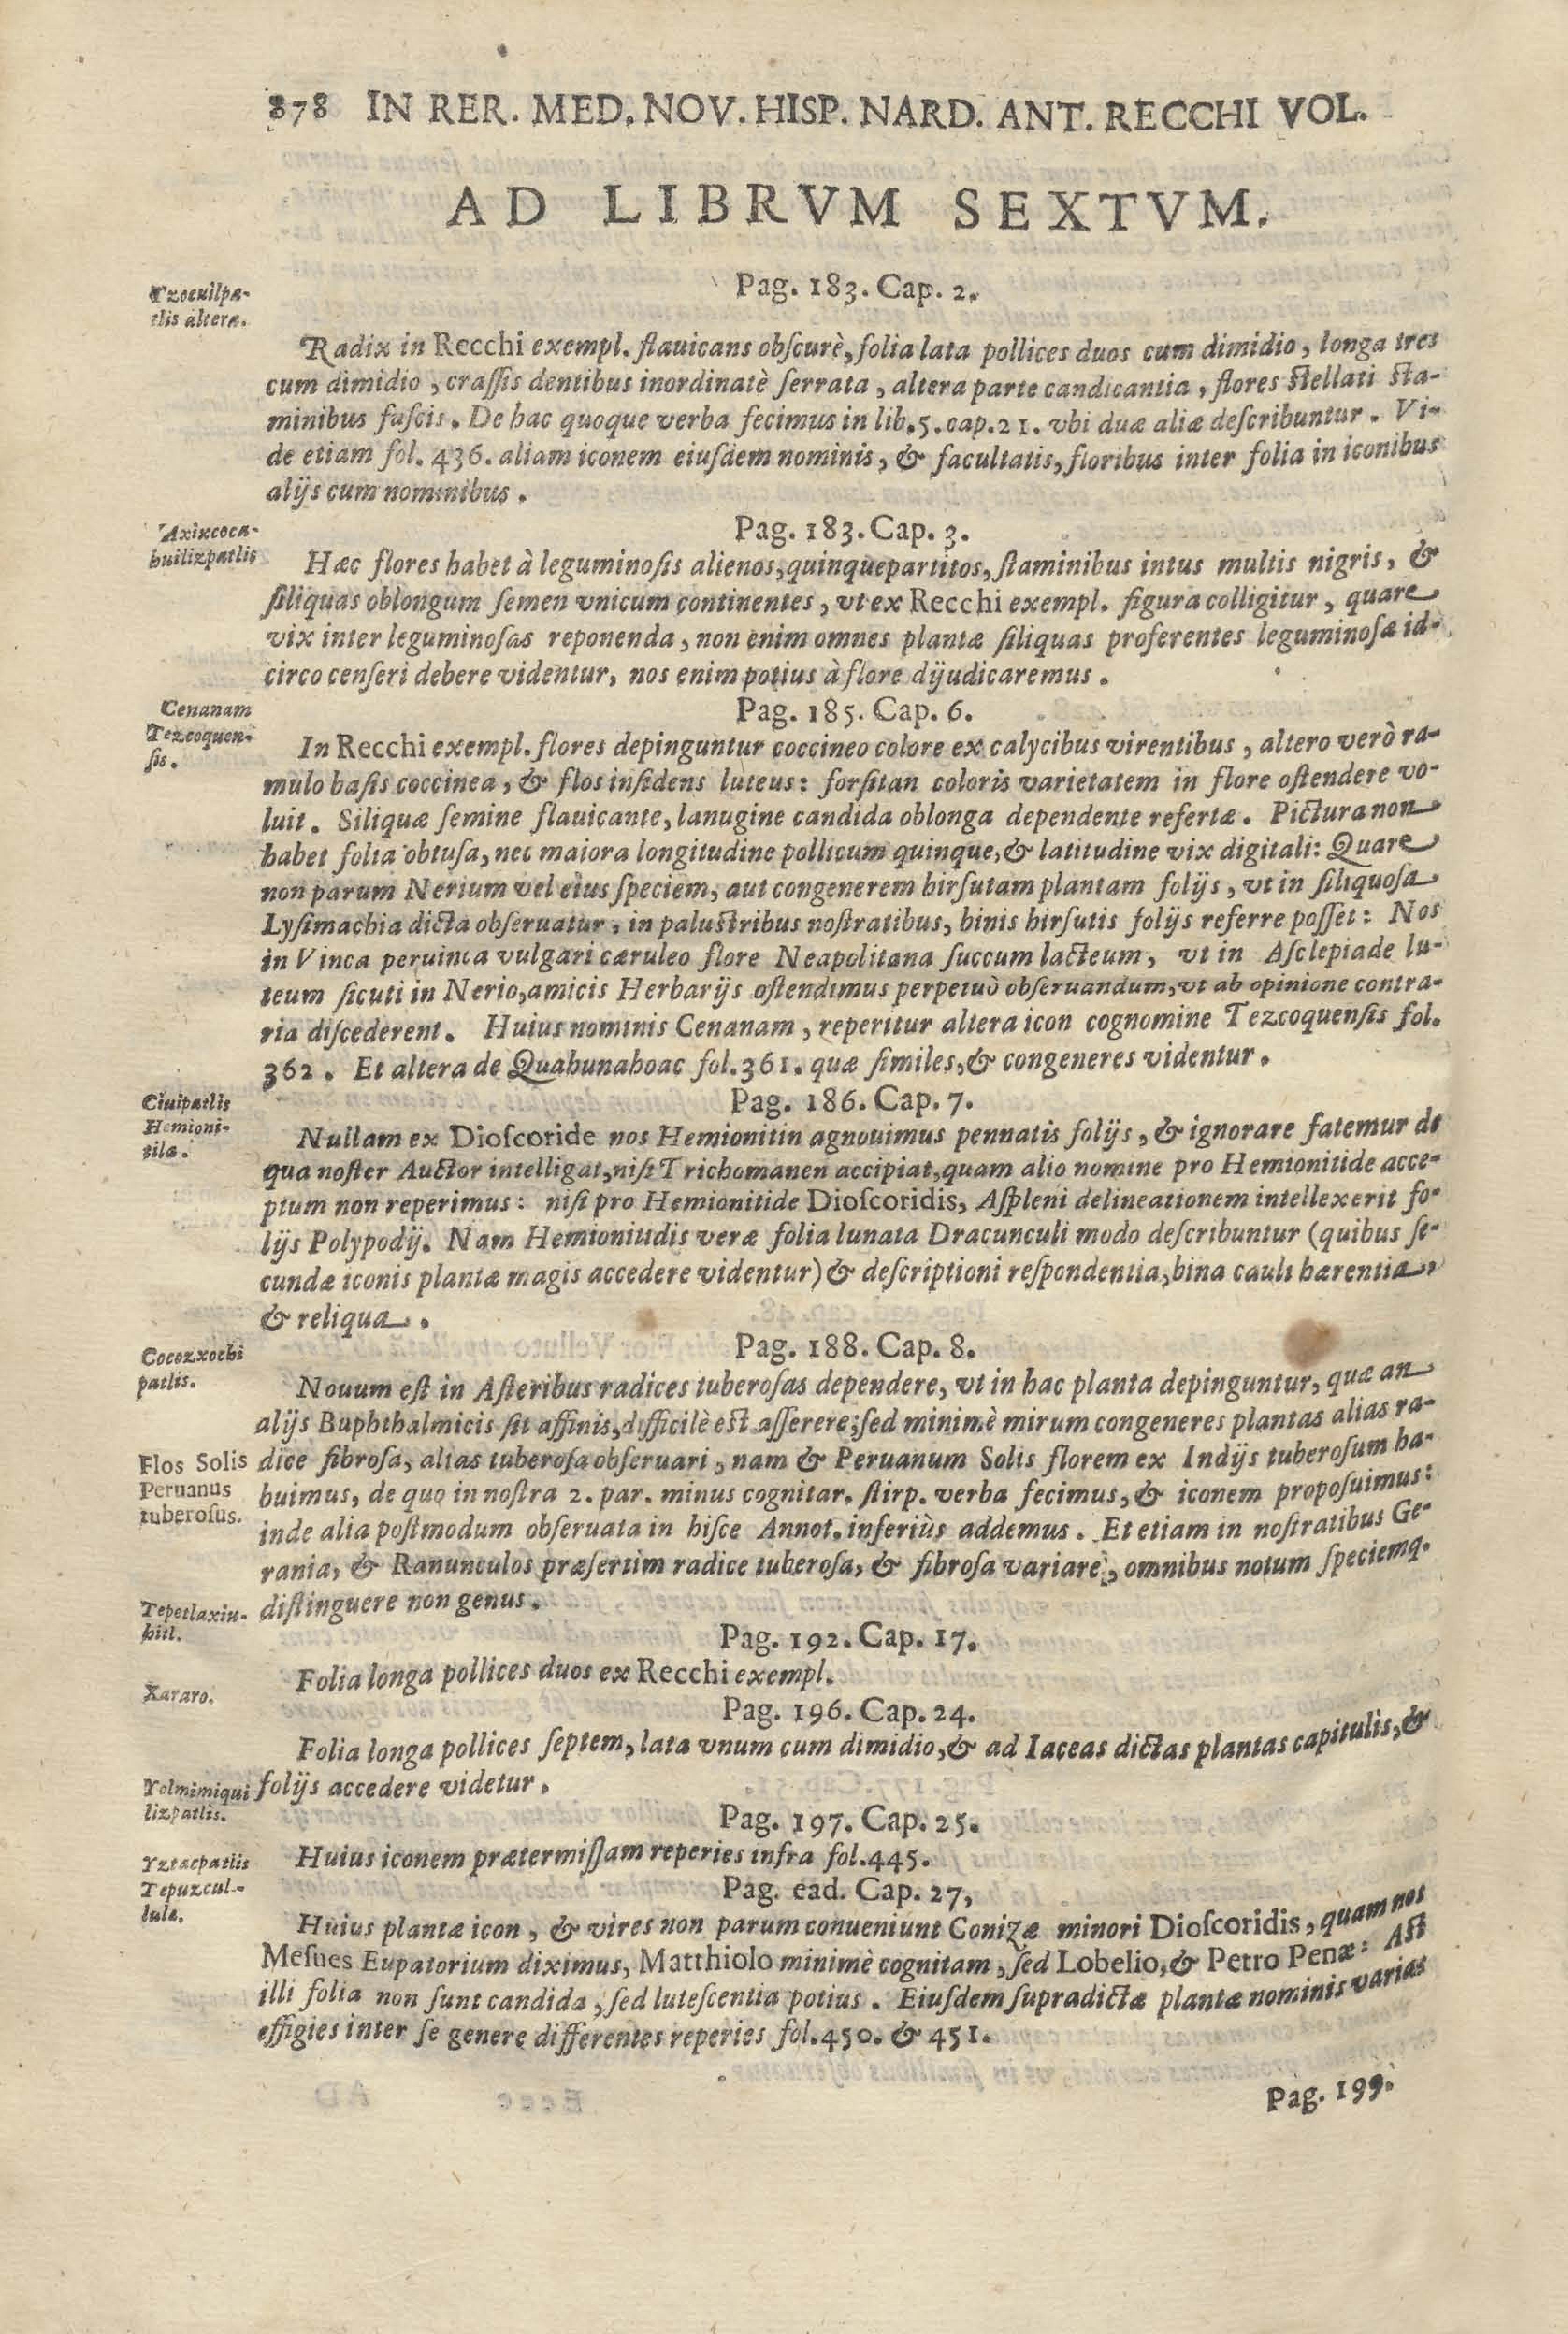 878 IN RER. MED. NOV. HISP. NARD. ANT. RECCHI VOL.
AD LIBRVM SEXTVM.
Pag. 183. Cap. 2.
Tzocuilpa-
tlis altera.
Radix in Recchi exempl. flauicans obſcurè, folia lata pollices duos cum dimidio, longa tres
cum dimidio, craſſis dentibus inordinatè ſerrata, altera parte candicantia, flores ſtellati ſta-
minibus fuſcis. De hac quoque verba fecimus in lib. 5. cap. 21. vbi duæ aliæ deſcribuntur. Vi-
de etiam fol. 436. aliam iconem eiuſdem nominis, & facultatis, floribus inter folia in iconibus
alijs cum nominibus.
Pag. 183. Cap. 3.
Axixcoca-
huilizpatlis
Hæc flores habet à leguminoſis alienos, quinquepartitos, ſtaminibus intus multis nigris, &
ſiliquas oblongum ſemen vnicum continentes, vt ex Recchi exempl. figura colligitur, quare
vix inter leguminoſas reponenda, non enim omnes plantæ ſiliquas proferentes leguminoſæ id-
circo cenſeri debere videntur, nos enim potius à flore dijudicaremus.
Pag. 185. Cap. 6.
Cenanam
Tezcoquen-
ſis.
In Recchi exempl. flores depinguntur coccineo colore ex calycibus virentibus, altero verò ra-
mulo baſis coccinea, & flos inſidens luteus: forſitan coloris varietatem in flore oſtendere vo-
luit. Siliquæ ſemine flauicante, lanugine candida oblonga dependente refertæ. Pictura non
habet folia obtuſa, nec maiora longitudine pollicum quinque, & latitudine vix digitali: Quare
non parum Nerium vel eius ſpeciem, aut congenerem hirſutam plantam folijs, vt in ſiliquoſa
Lyſimachia dicta obſeruatur, in paluſtribus noſtratibus, binis hirſutis folijs referre poſſet: Nos
in Vinca peruinca vulgari cæruleo flore Neapolitana ſuccum lacteum, vt in Aſclepiade lu-
teum ſicuti in Nerio, amicis Herbarijs oſtendimus perpetuò obſeruandum, vt ab opinione contra-
ria diſcederent. Huius nominis Cenanam, reperitur altera icon cognomine Tezcoquenſis fol.
362. Et altera de Quahunahoac fol. 361. quæ ſimiles, & congeneres videntur.
Pag. 186. Cap. 7.
Ciuipatlis
Hemioni-
tila.
Nullam ex Dioſcoride nos Hemionitin agnouimus pennatis folijs, & ignorare fatemur de
qua noſter Auctor intelligat, niſi Trichomanen accipiat, quam alio nomine pro Hemionitide acce-
ptum non reperimus: niſi pro Hemionitide Dioſcoridis, Aſpleni delineationem intellexerit fo-
lijs Polypodij. Nam Hemionitidis veræ folia lunata Dracunculi modo deſcribuntur (quibus ſe-
cundæ iconis plantæ magis accedere videntur) & deſcriptioni reſpondentia, bina cauli hærentia,
& reliqua.
Pag. 188. Cap. 8.
Cocozxochi
patlis.
Nouum eſt in Aſteribus radices tuberoſas dependere, vt in hac planta depinguntur, quæ an
alijs Buphthalmicis ſit affinis, difficilè eſt aſſerere; ſed minimè mirum congeneres plantas alias ra-
Flos Solis
Peruanus
tuberoſus.
dice fibroſa, alias tuberoſa obſeruari, nam & Peruanum Solis florem ex Indijs tuberoſum ha-
buimus, de quo in noſtra 2. par. minus cognitar. ſtirp. verba fecimus, & iconem propoſuimus:
inde alia poſtmodum obſeruata in hiſce Annot. inferiùs addemus. Et etiam in noſtratibus Ge-
rania, & Ranunculos præſertim radice tuberoſa, & fibroſa variare, omnibus notum ſpeciemq.
diſtinguere non genus.
Tepetlaxiu-
hitl.
Pag. 192. Cap. 17.
Folia longa pollices duos ex Recchi exempl.
Xararo.
Pag. 196. Cap. 24.
Folia longa pollices ſeptem, lata vnum cum dimidio, & ad Iaceas dictas plantas capitulis, &
folijs accedere videtur.
Yolmimiqui
lizpatlis.
Pag. 197. Cap. 25.
Huius iconem prætermiſſam reperies infra fol. 445.
Yztacpatlis
Tepuzcul-
lula.
Pag. ead. Cap. 27,
Huius plantæ icon, & vires non parum conueniunt Conizæ minori Dioſcoridis, quam nos
Meſues Eupatorium diximus, Matthiolo minimè cognitam, ſed Lobelio, & Petro Penæ: Aſt
illi folia non ſunt candida, ſed luteſcentia potius. Eiuſdem ſupradictæ plantæ nominis varias
effigies inter ſe genere differentes reperies fol. 450. & 451.
Pag. 199.